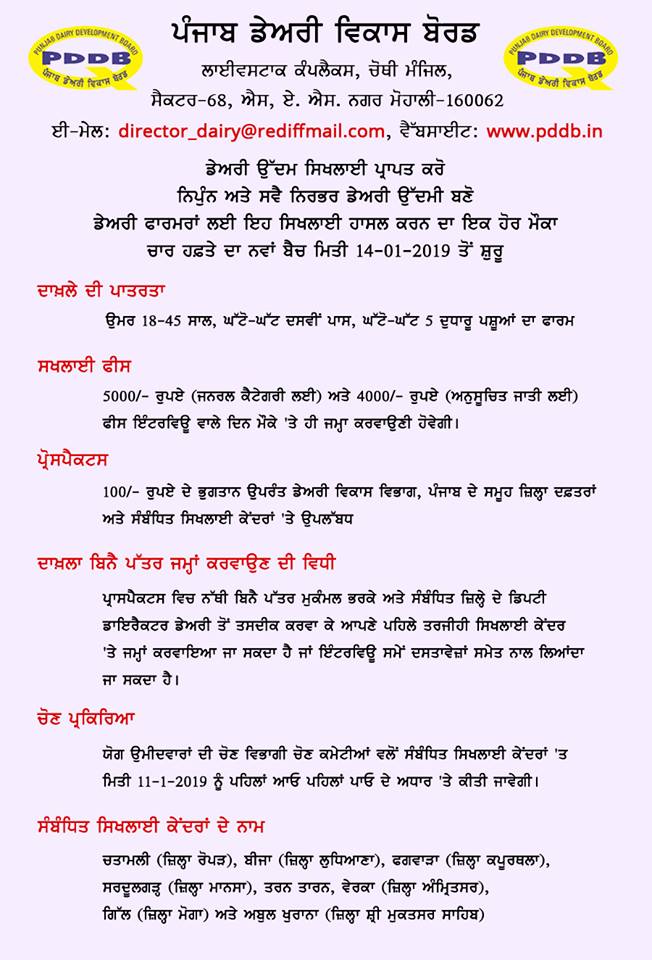 PUNJAB DAIRY DEVELOPMENT BOARD
PDDB
ਪੰਜਾਬ ਡੇਅਰੀ ਵਿਕਾਸ ਬੋਰਡ
ਪੰਜਾਬ ਡੇਅਰੀ ਵਿਕਾਸ ਬੋਰਡ
PUNJAB DAIRY DEVELOPMENT BOARD
PDDB
ਪੰਜਾਬ ਡੇਅਰੀ ਵਿਕਾਸ ਬੋਰਡ
ਲਾਈਵਸਟਾਕ ਕੰਪਲੈਕਸ, ਚੋਥੀ ਮੰਜਿਲ,
ਸੈਕਟਰ-68, ਐਸ, ਏ. ਐਸ. ਨਗਰ ਮੋਹਾਲੀ-160062
ਈ-ਮੇਲ: director_dairy@rediffmail.com, ਵੈੱਬਸਾਈਟ: www.pddb.in
ਡੇਅਰੀ ਉੱਦਮ ਸਿਖਲਾਈ ਪ੍ਰਾਪਤ ਕਰੋ
ਨਿਪੁੰਨ ਅਤੇ ਸਵੈ ਨਿਰਭਰ ਡੇਅਰੀ ਉੱਦਮੀ ਬਣੋ
ਡੇਅਰੀ ਫਾਰਮਰਾਂ ਲਈ ਇਹ ਸਿਖਲਾਈ ਹਾਸਲ ਕਰਨ ਦਾ ਇਕ ਹੋਰ ਮੌਕਾ
ਚਾਰ ਹਫ਼ਤੇ ਦਾ ਨਵਾਂ ਬੈਚ ਮਿਤੀ 14-01-2019 ਤੋਂ ਸ਼ੁਰੂ
ਦਾਖ਼ਲੇ ਦੀ ਪਾਤਰਤਾ
ਉਮਰ 18-45 ਸਾਲ, ਘੱਟੋ-ਘੱਟ ਦਸਵੀਂ ਪਾਸ, ਘੱਟੋ-ਘੱਟ 5 ਦੁਧਾਰੂ ਪਸ਼ੂਆਂ ਦਾ ਫਾਰਮ
ਸਖਲਾਈ ਫੀਸ
5000/- ਰੁਪਏ (ਜਨਰਲ ਕੈਟੇਗਰੀ ਲਈ) ਅਤੇ 4000/- ਰੁਪਏ (ਅਨੁਸੂਚਿਤ ਜਾਤੀ ਲਈ)
ਫੀਸ ਇੰਟਰਵਿਊ ਵਾਲੇ ਦਿਨ ਮੌਕੇ 'ਤੇ ਹੀ ਜਮ੍ਹਾ ਕਰਵਾਉਣੀ ਹੋਵੇਗੀ।
ਪ੍ਰੋਸਪੈਕਟਸ
100/- ਰੁਪਏ ਦੇ ਭੁਗਤਾਨ ਉਪਰੰਤ ਡੇਅਰੀ ਵਿਕਾਸ ਵਿਭਾਗ, ਪੰਜਾਬ ਦੇ ਸਮੂਹ ਜ਼ਿਲ੍ਹਾ ਦਫ਼ਤਰਾਂ
ਅਤੇ ਸੰਬੰਧਿਤ ਸਿਖਲਾਈ ਕੇਂਦਰਾਂ 'ਤੇ ਉਪਲੱਬਧ
ਦਾਖ਼ਲਾ ਬਿਨੈ ਪੱਤਰ ਜਮ੍ਹਾਂ ਕਰਵਾਉਣ ਦੀ ਵਿਧੀ
ਪ੍ਰਾਸਪੈਕਟਸ ਵਿਚ ਨੱਥੀ ਬਿਨੈ ਪੱਤਰ ਮੁਕੰਮਲ ਭਰਕੇ ਅਤੇ ਸੰਬੰਧਿਤ ਜ਼ਿਲ੍ਹੇ ਦੇ ਡਿਪਟੀ
ਡਾਇਰੈਕਟਰ ਡੇਅਰੀ ਤੋਂ ਤਸਦੀਕ ਕਰਵਾ ਕੇ ਆਪਣੇ ਪਹਿਲੇ ਤਰਜੀਹੀ ਸਿਖਲਾਈ ਕੇਂਦਰ
'ਤੇ ਜਮ੍ਹਾਂ ਕਰਵਾਇਆ ਜਾ ਸਕਦਾ ਹੈ ਜਾਂ ਇੰਟਰਵਿਊ ਸਮੇਂ ਦਸਤਾਵੇਜ਼ਾਂ ਸਮੇਤ ਨਾਲ ਲਿਆਂਦਾ
ਜਾ ਸਕਦਾ ਹੈ।
ਚੋਣ ਪ੍ਰਕਿਰਿਆ
ਯੋਗ ਉਮੀਦਵਾਰਾਂ ਦੀ ਚੋਣ ਵਿਭਾਗੀ ਚੋਣ ਕਮੇਟੀਆਂ ਵਲੋਂ ਸੰਬੰਧਿਤ ਸਿਖਲਾਈ ਕੇਂਦਰਾਂ 'ਤ
ਮਿਤੀ 11-1-2019 ਨੂੰ ਪਹਿਲਾਂ ਆਓ ਪਹਿਲਾਂ ਪਾਓ ਦੇ ਅਧਾਰ 'ਤੇ ਕੀਤੀ ਜਾਵੇਗੀ।
ਸੰਬੰਧਿਤ ਸਿਖਲਾਈ ਕੇਂਦਰਾਂ ਦੇ ਨਾਮ
ਚਤਾਮਲੀ (ਜ਼ਿਲ੍ਹਾ ਰੋਪੜ), ਬੀਜਾ (ਜ਼ਿਲ੍ਹਾ ਲੁਧਿਆਣਾ), ਫਗਵਾੜਾ (ਜ਼ਿਲ੍ਹਾ ਕਪੂਰਥਲਾ),
ਸਰਦੂਲਗੜ੍ਹ (ਜ਼ਿਲ੍ਹਾ ਮਾਨਸਾ), ਤਰਨ ਤਾਰਨ, ਵੇਰਕਾ (ਜ਼ਿਲ੍ਹਾ ਅੰਮ੍ਰਿਤਸਰ),
ਗਿੱਲ (ਜ਼ਿਲ੍ਹਾ ਮੋਗਾ) ਅਤੇ ਅਬੁਲ ਖੁਰਾਨਾ (ਜ਼ਿਲ੍ਹਾ ਸ਼੍ਰੀ ਮੁਕਤਸਰ ਸਾਹਿਬ)